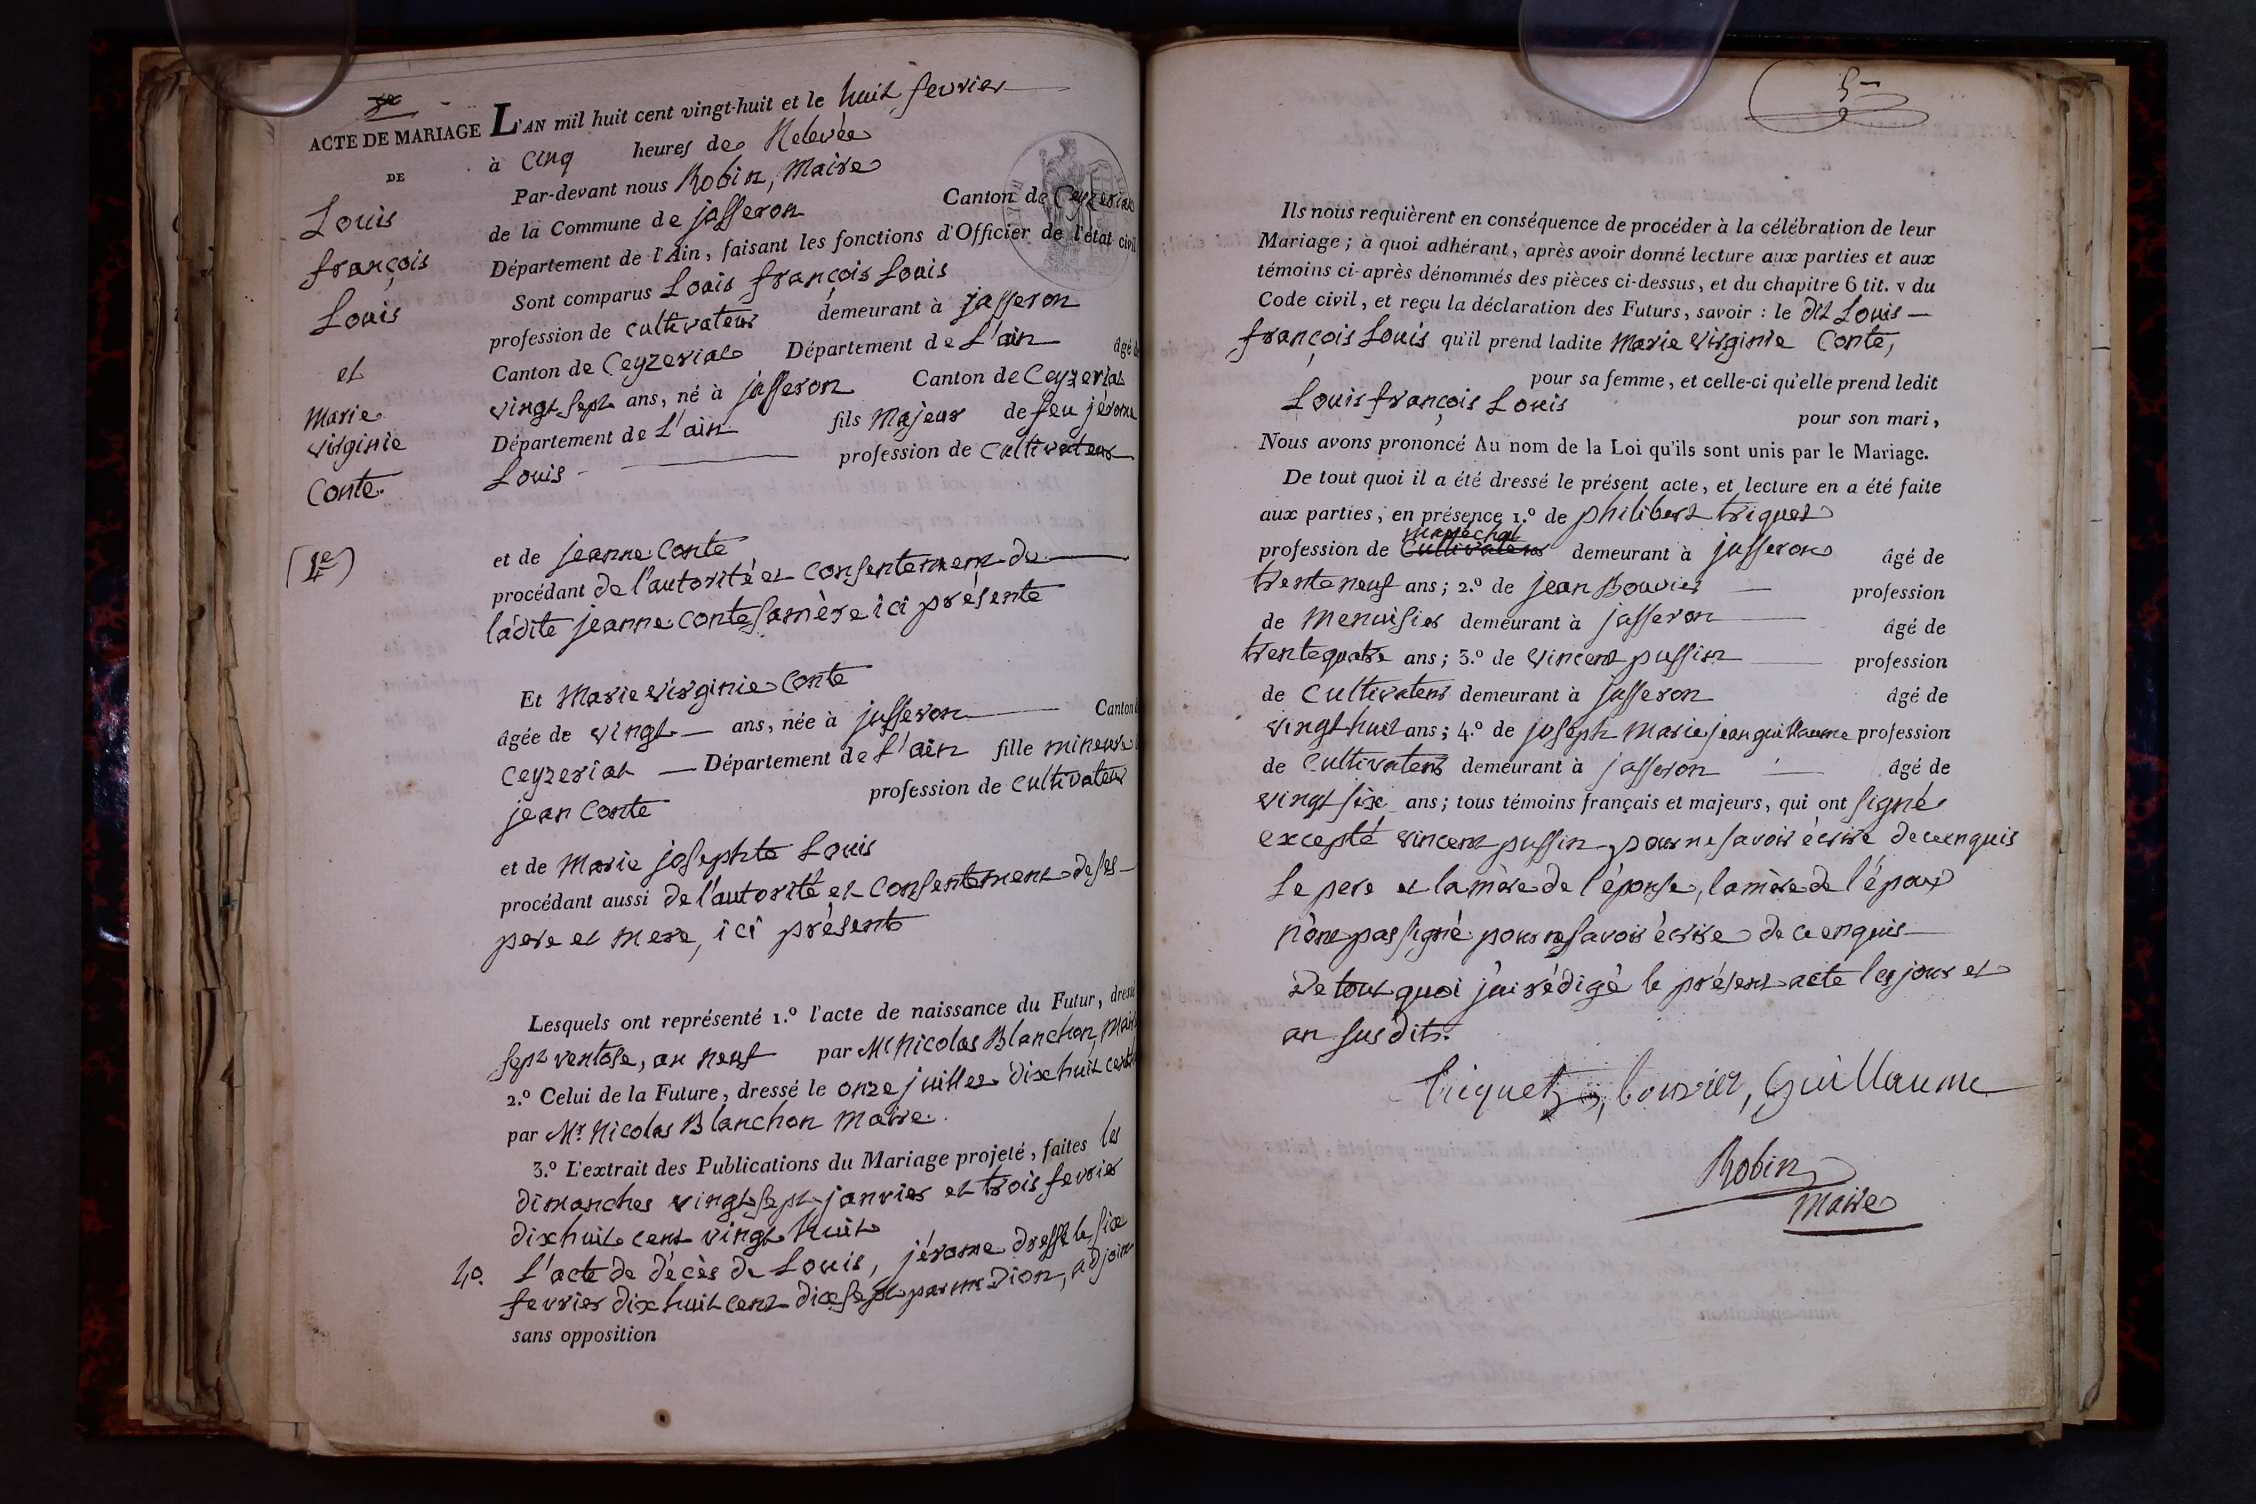 5e
ACTE DE MARIAGE
DE
Louis
françois
Louis
et
Marie
virginie
Conte.
(1e)
L'AN mil huit cent vingt-huit et le huit fevrier
à Cinq heures de Relevée
Par-devant nous Robin, Maire
de la Commune de jasseron Canton de Ceyzeriat
Département de l'Ain, faisant les fonctions d'Officier de l'état civil
Sont comparus Louis françois Louis
profession de cultivateur demeurant à jasseron
Canton de Ceyzeriat Département de L'ain âgé de
vingt sept ans, né à jasseron Canton de Ceyzeriat
Département de L'ain fils Majeur de feu jérome
Louis profession de cultivateur
et de jeanne Conte
procédant de l'autorité et consentement de
ladite jeanne conte sa mère ici présente
Et Marie virginie Conte
âgée de vingt ans, née à jasseron Canton
Ceyzeriat Département de L'ain fille mineure
jean Conte profession de cultivateur
et de Marie josephte Louis
procédant aussi de l'autorité et consentement de ses
pere et mere, ici présents
Lesquels ont représenté 1.º l'acte de naissance du Futur, dressé
sept ventose, an neuf par Mr Nicolas Blanchon, Maire
2.º Celui de la Future, dressé le onze juillet dixhuit cent
par Mr Nicolas Blanchon Maire.
3.º L'extrait des Publications du Mariage projeté, faites les
dimanches vingt sept janvier et trois fevrier
dixhuit cent vingt huit
4o. L'acte de décès de Louis, jérome dressé le six
fevrier dix huit cent dix sept par mr Dion, adjoint
sans opposition
5
Ils nous requièrent en conséquence de procéder à la célébration de leur
Mariage; à quoi adhérant, après avoir donné lecture aux parties et aux
témoins ci-après dénommés des pièces ci-dessus, et du chapitre 6 tit. v du
Code civil, et reçu la déclaration des Futurs, savoir : le dit Louis
françois Louis qu'il prend ladite Marie virginie Conte,
pour sa femme, et celle-ci qu'elle prend ledit
Louis françois Louis
pour son mari,
Nous avons prononcé Au nom de la Loi qu'ils sont unis par le Mariage.
De tout quoi il a été dressé le présent acte, et lecture en a été faite
aux parties, en présence 1.º de philibert triquet
maréchal
profession de Cultivateur demeurant à jasseron âgé de
trente neuf ans; 2.º de jean Bouvier profession
de Menuisier demeurant à jasseron âgé de
trente quatre ans; 3.º de vincent puffin profession
de Cultivateur demeurant à jasseron âgé de
vingt huit ans; 4.º de joseph Marie jean guillaume profession
de Cultivateur demeurant à jasseron âgé de
vingt six ans; tous témoins français et majeurs, qui ont signé
excepté vincent puffin pour ne savoir écrire de ce enquis
Le pere et la mère de l'épouse, la mère de l'époux
n'ont pas signé pour ne savoir écrire de ce enquis
De tout quoi j'ai rédigé le présent acte les jour et
an susdits.
triquet, bouvier, Guillaume
Robin
Maire